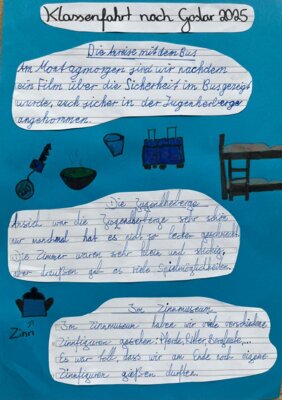 Klassenfahrt nach Goslar 2025
Die Anreise mit dem Bus
Am Montagmorgen sind wir nachdem
ein Film über die Sicherheit im Bus gezeigt
wurde, auch sicher in der Jugenherberge
angekommen.
Die Jugendherberge
Ansich war die Jugendherberge sehr schön
nur manchmal hat es nicht so lecker geschmeckt.
Die Zimmer waren sehr klein und stickig,
aber draußen gab es viele Spielmöglichkeiten.
Im Zinnmuseum
Im Zinnmuseum haben wir viele verschiedene
Zinnfiguren gesehen: Pferde, Ritter,
Es war toll, dass wir am Ende noch eigene
Zinnfiguren gießen durften.
Zinn